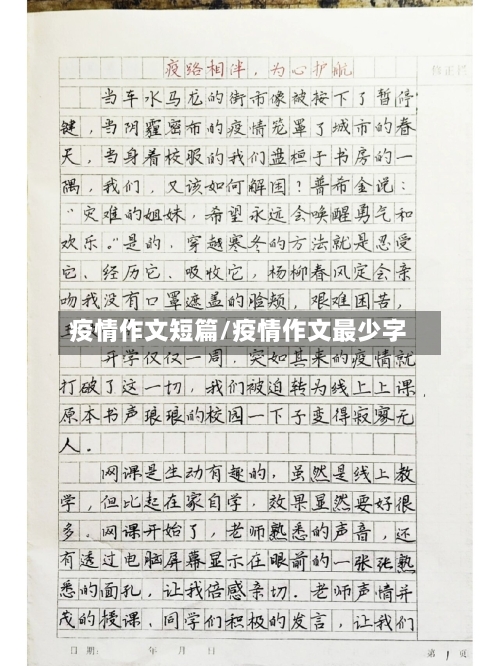 疫路相伴，为心护航
当车水马龙的街市像被按下了暂停
键，当阴霾密布的疫情笼罩了城市的春
天，当身着校服的我们盘桓于书房的一
隅，我们，又该如何解困？普希金说：
“灾难的姐妹，希望永远会唤醒勇气和
欢乐。”是的，穿越寒冬的方法就是忍受
它、经历它、吸收它，杨柳春风定会亲
吻我没有口罩遮盖的脸颊，艰难困苦，
疫情作文短篇/疫情作文最少字
开学仅仅一周，突如其来的疫情就
打破了这一切，我们被迫转为线上上课，
原本书声琅琅的校园一下子变得寂寥无
人。
网课是生动有趣的，虽然是线上教
学，但比起在家自学，效果显然要好很
多。网课开始了，老师熟悉的声音，还
有透过电脑屏幕显示在眼前的一张张熟
悉的面孔，让我倍感亲切。老师声情并
茂的授课、同学们积极的发言，让我们
日期： 年 月 日 第 1 页